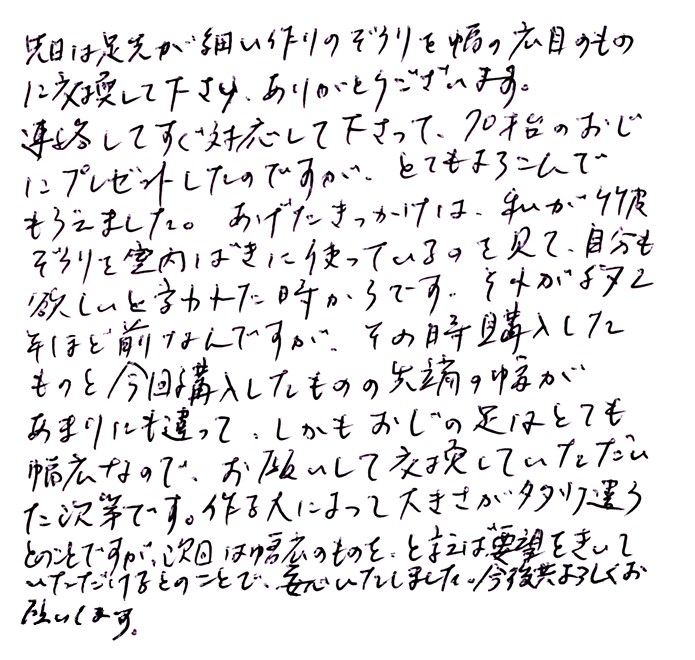 先日は足先が細い作りのぞうりを幅の広目のもの
に交換して下さり、ありがとうございます。
連絡してすぐ対応して下さって、70才台のおじ
にプレゼントしたのですが、とてもよろこんで
もらえました。あげたきっかけは、私が竹皮
ぞうりを室内ばきに使っているのを見て、自分も
欲しいと言われた時からです。それが約2
年ほど前なんですが、その時購入した
ものと今回購入したものの先端の幅が
あまりにも違って、しかもおじの足はとても
幅広なので、お願いして交換していただい
た次第です。作る人によって大きさが多少違う
とのことですが、次回は幅広のものを、と言えば要望をきいて
いただけるとのことで、安心いたしました。今後共よろしくお
願いします。